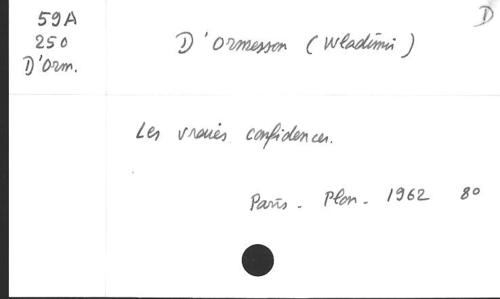 59A
250
D'Orm.
D
D'Ormesson (Wladimir)
Les vraies confidences.
Paris - Plon - 1962 8°